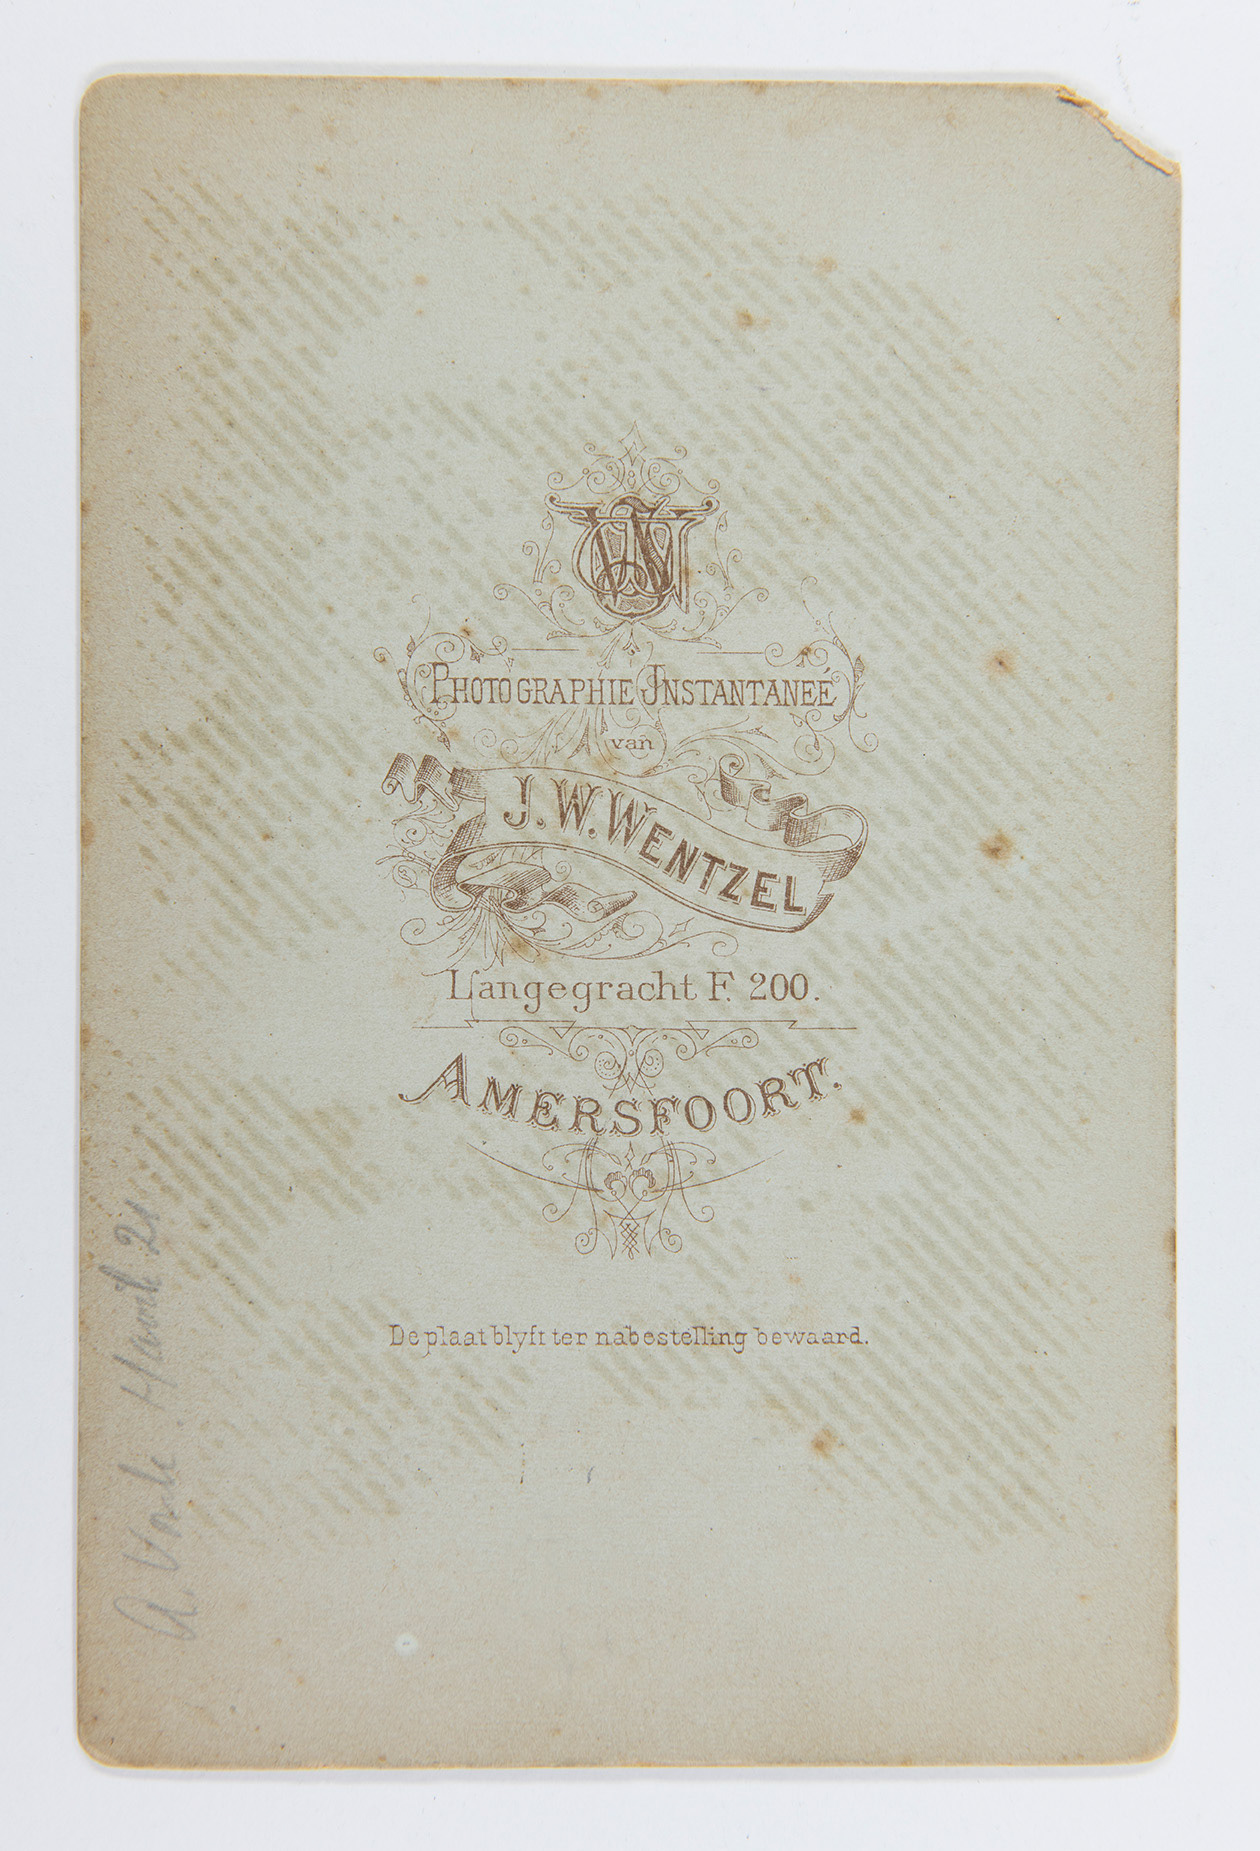 PHOTOGRAPHIE INSTANTANEÉ
van
J. W. WENTZEL
Langegracht F. 200.
AMERSFOORT.
De plaat blyft ter nabestelling bewaard.
A. 21